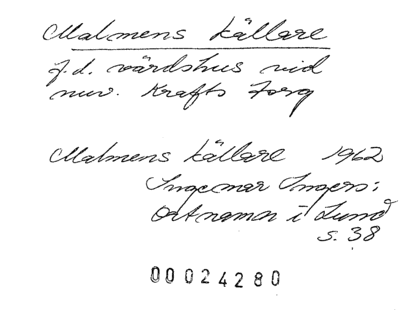 Malmens källare
f.d. värdshus vid
nuv. Krafts torg
Malmens källare 1962
Ingemar Ingers:
Ortnamn i Lund
s. 38
00024280